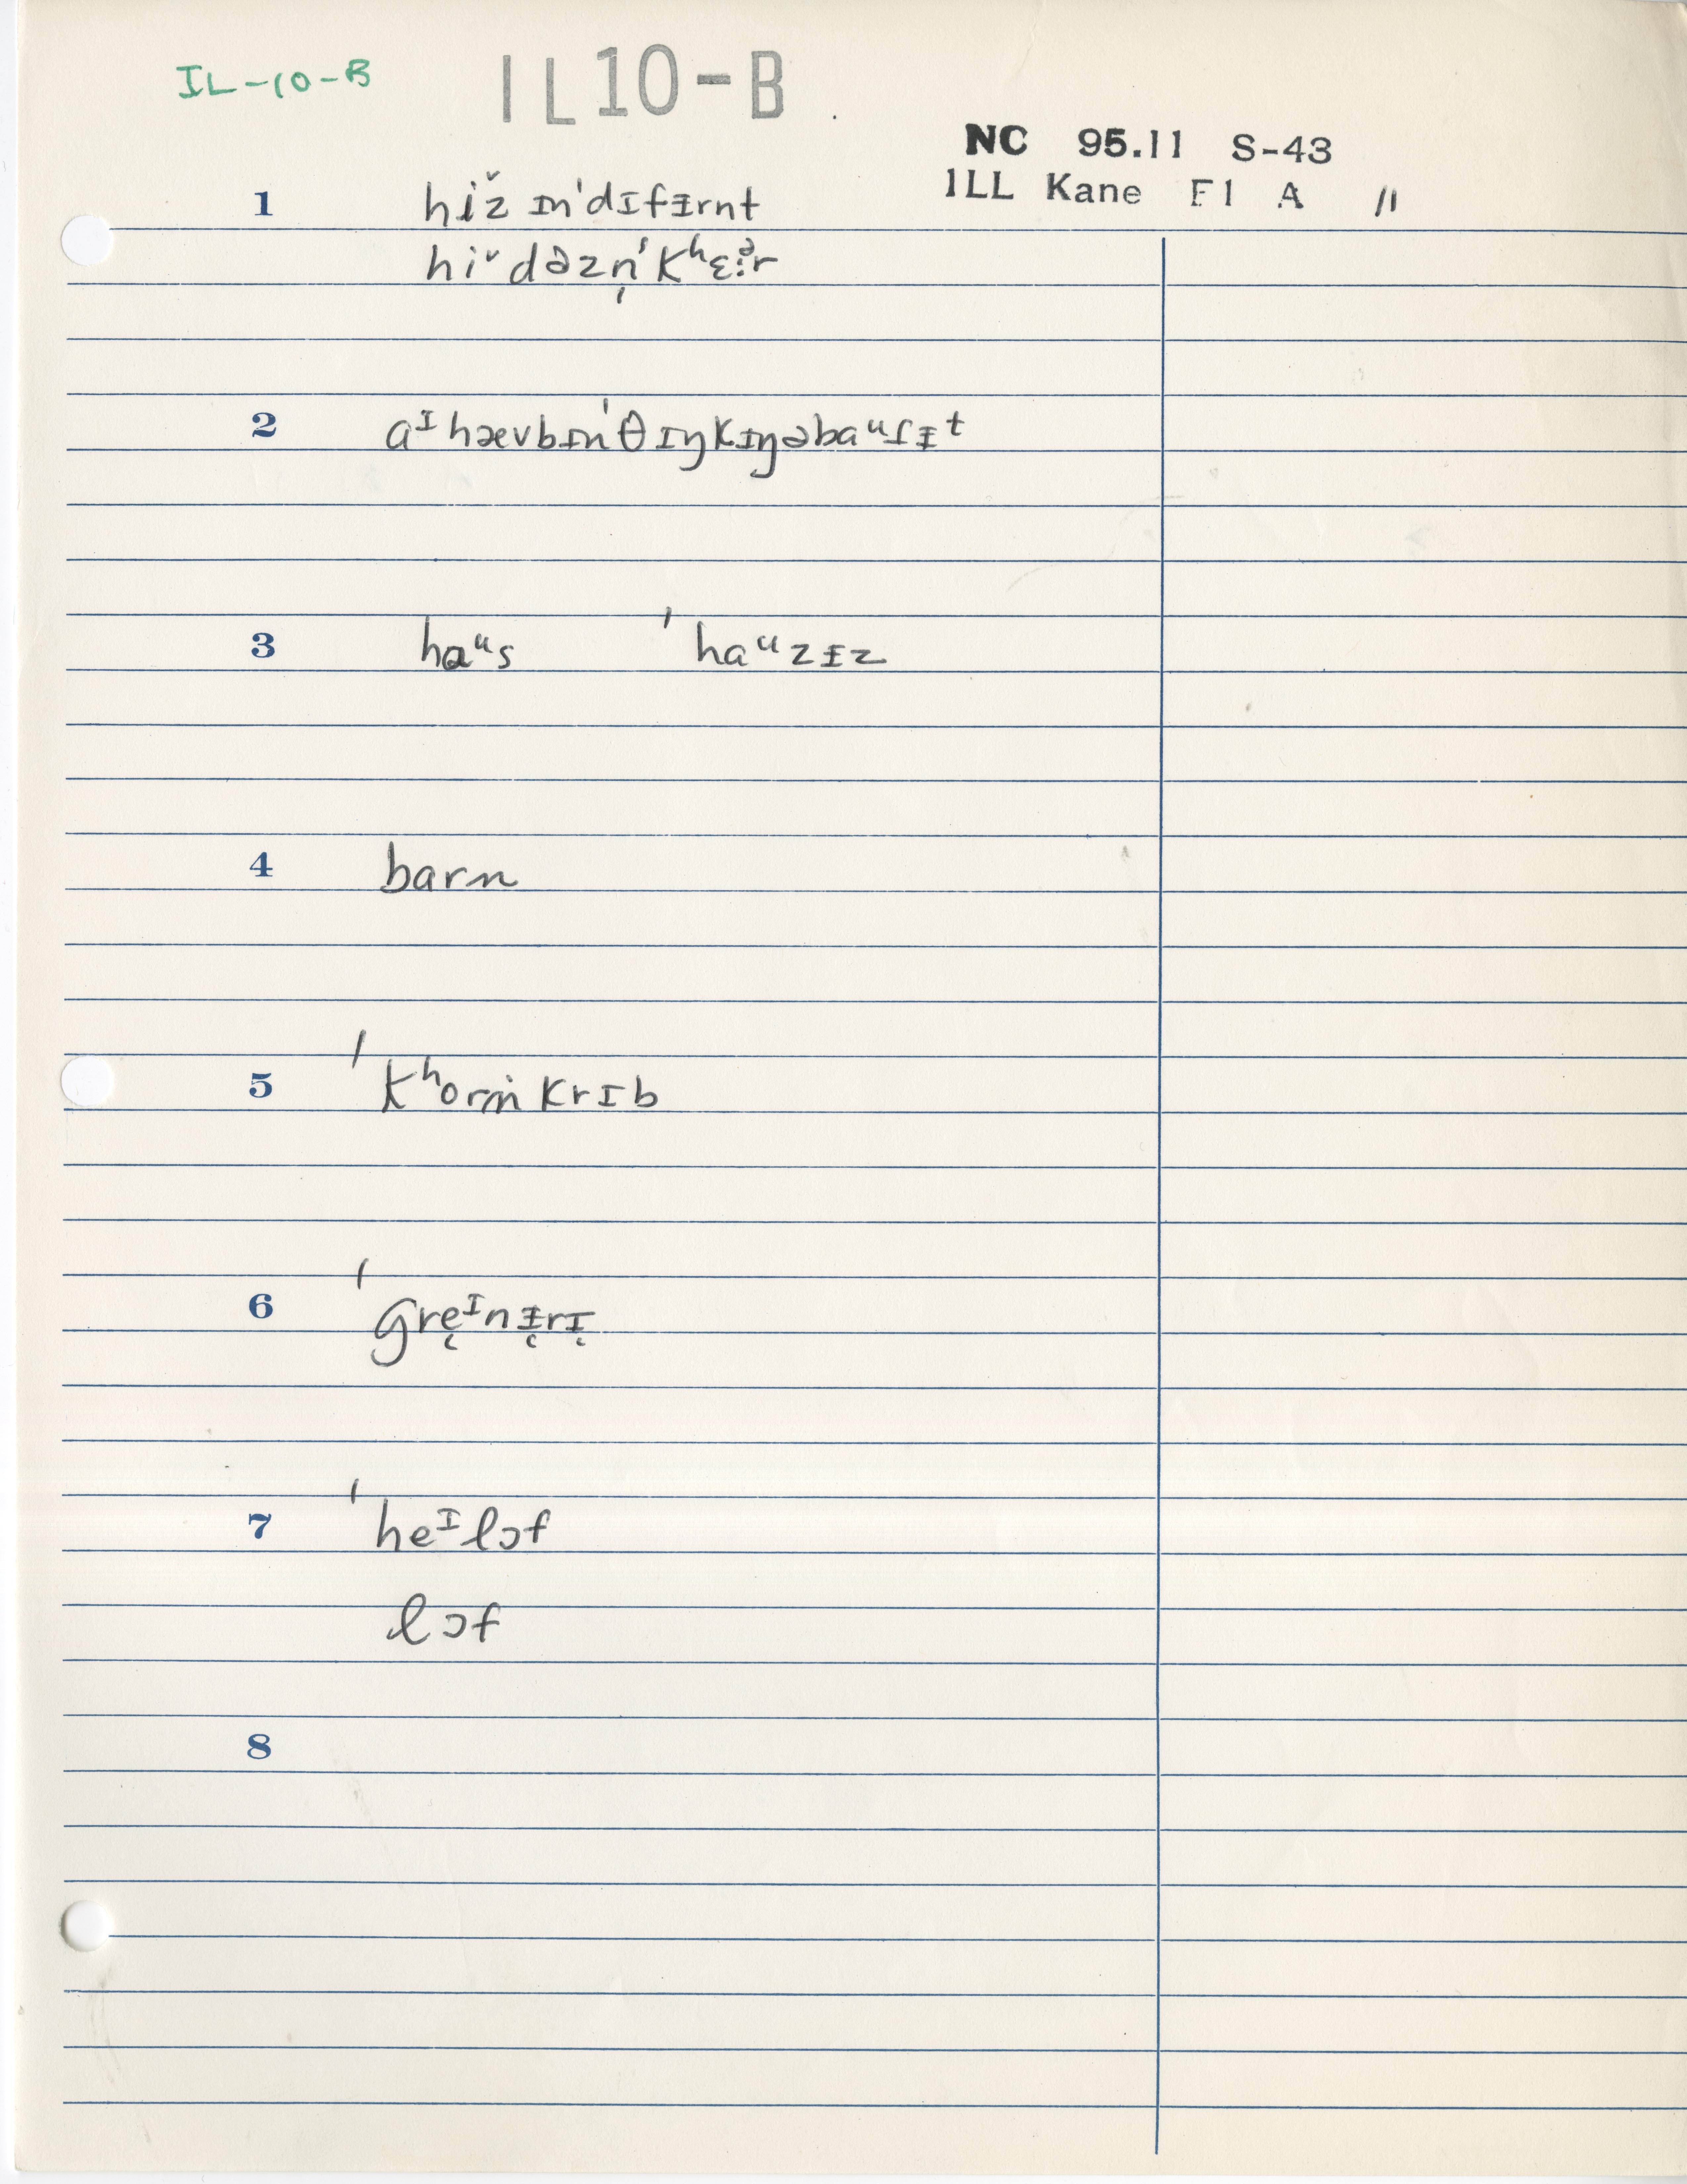 IL-10-B
IL10-B
NC 95.11 S-43
ILL Kane F1 A 11
1 hiˇz ɪnˈdɪfɨrnt
hiˇ dəzn̩ˈkʰɛ·ᵊr
2 aᶦhævbɪnˈθɪŋkɪŋəbaᵘɾɨᵗ
3 haᵘs ˈhaᵘzɨz
4 barn
5 ˈkʰorṅkrɪb
6 ˈgre̜ᶦnɨ̜rɪ̜
7 ˈheᶦlɔf
lɔf
8